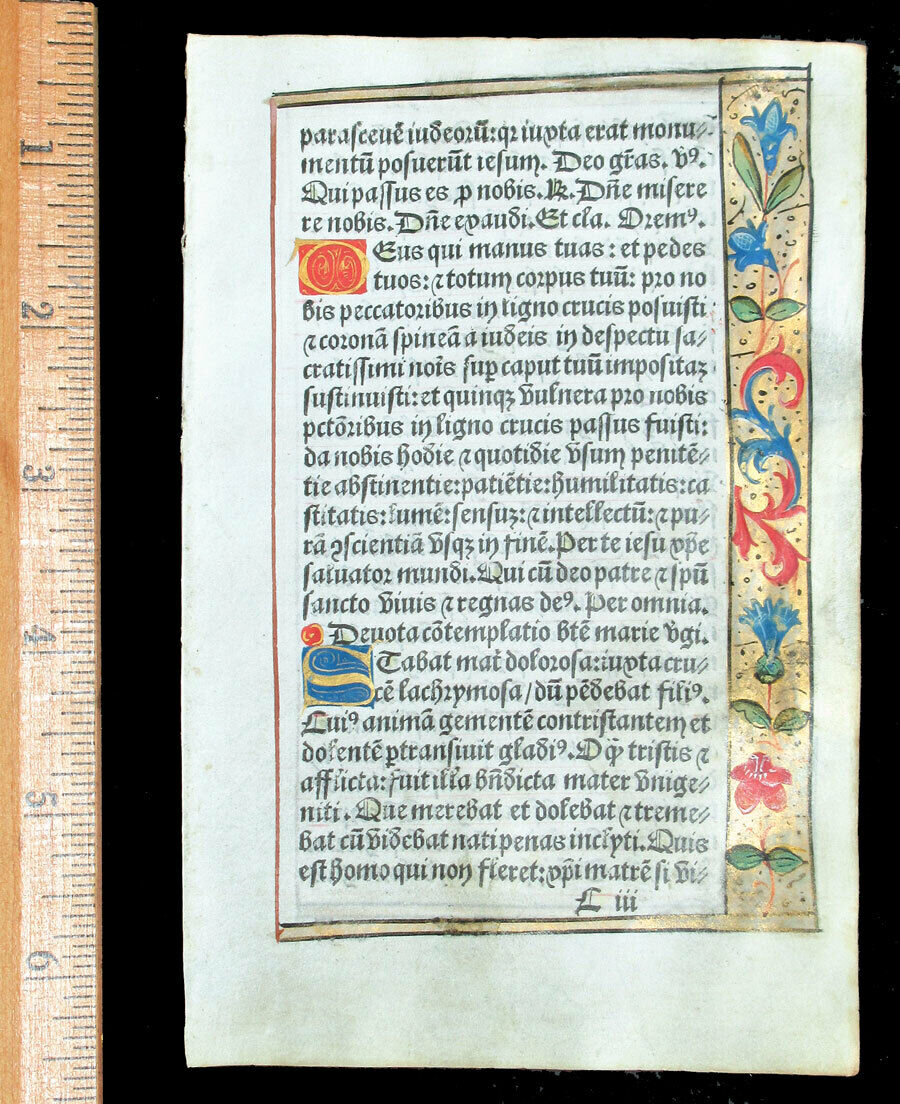 parasceuē iudeorū: qr iuxta erat monu⸗
mentū posuerūt iesum. Deo grās. v̄ꝰ.
Qui passus es ꝓ nobis. ℟. Dn̄e misere
re nobis. Dn̄e exaudi. Et cla. Oremꝰ.
Eus qui manus tuas : et pedes
tuos: ⁊ totum corpus tuū: pro no
bis peccatoribus in ligno crucis posuisti
⁊ coronā spineā a iudeis in despectu sa⸗
cratissimi noīs sup caput tuū impositaꝫ
sustinuisti: et quinqꝫ vulnera pro nobis
pctōribus in ligno crucis passus fuisti:
da nobis hodie ⁊ quotidie vsum penitē⸗
tie abstinentie: patiētie: humilitatis: ca
stitatis: lumē: sensuꝫ: ⁊ intellectū: ⁊ pu⸗
rā ꝯscientiā vsqꝫ in finē. Per te iesu xp̄e
saluator mundi. Qui cū deo patre ⁊ spū
sancto viuis ⁊ regnas deꝰ. Per omnia.
Deuota cōtemplatio btē marie v̄gi.
STabat mat̄ dolorosa: iuxta cru⸗
cē lachrymosa / dū pēdebat filiꝰ.
Cuiꝰ animā gementē contristantem et
dolentē ꝑtransiuit gladiꝰ. O ꝙ tristis ⁊
afflicta: fuit illa bn̄dicta mater vnige⸗
niti. Que merebat et dolebat ⁊ treme⸗
bat cū videbat nati penas inclyti. Quis
est homo qui non fleret: xp̄i matrē si vi⸗
L iii
1
2
3
4
5
6